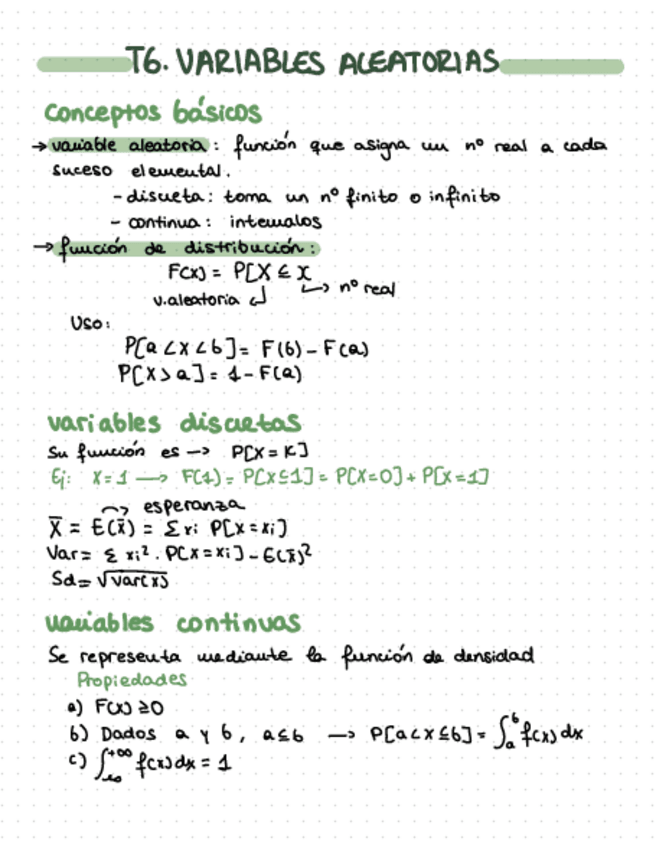 T6. VARIABLES ALEATORIAS
Conceptos básicos
→ variable aleatoria: función que asigna un nº real a cada
suceso elemental.
- discreta: toma un nº finito o infinito
- continua: intervalos
→ función de distribución:
F(x) = P[X ≤ x
v.aleatoria ↲ ↳ nº real
Uso:
P[a < X < b] = F(b) - F(a)
P[X > a] = 1 - F(a)
variables discretas
Su función es → P[X = K]
Ej: X=1 → F(1) = P[X ≤ 1] = P[X=0] + P[X=1]
↷ esperanza
X̄ = E(x̄) = Σ xi P[X = xi]
Var = Σ xi² · P[X = xi] - E(x̄)²
Sd = √var(x)
variables continuas
Se representa mediante la función de densidad
Propiedades
a) F(x) ≥ 0
b) Dados a y b, a ≤ b → P[a < X ≤ b] = ∫ₐᵇ f(x) dx
c) ∫₋∞⁺∞ f(x) dx = 1